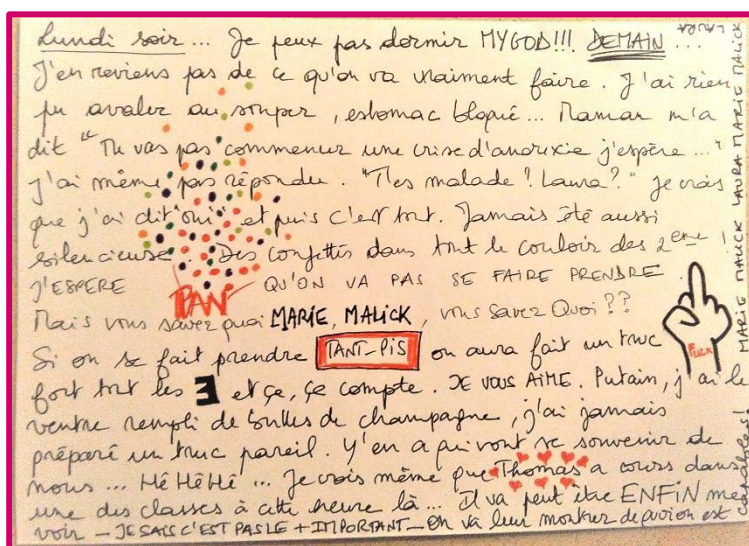 Lundi soir... Je peux pas dormir MYGOD!!! DEMAIN ...
J'en reviens pas de ce qu'on va vraiment faire. J'ai rien
pu avaler au souper, estomac bloqué... Maman m'a
dit "Tu vas pas commencer une crise d'anorexie j'espère..."
J'ai même pas répondu. "T'es malade? Laura?" Je crois
que j'ai dit "oui" et puis c'est tout. Jamais été aussi
silencieuse. Des confettis dans tout le couloir des 2ème !
J'ESPERE QU'ON VA PAS SE FAIRE PRENDRE.
PAN
Mais vous savez quoi MARIE, MALICK, vous savez Quoi??
Si on se fait prendre TANT-PIS on aura fait un truc
FUCK
fort tout les 3 et ça, ça compte. JE VOUS AIME. Putain, j'ai le
ventre rempli de bulles de champagne, j'ai jamais
préparé un truc pareil. Y'en a qui vont se souvenir de
nous... Hé Hé Hé... Je crois même que Thomas a cours dans
une des classes à cette heure là... Il va peut être ENFIN me
voir - JE SAIS C'EST PAS LE + IMPORTANT - On va leur montrer de quoi on est
capables! MARIE MALICK LAURA MARIE MALICK
LAURA